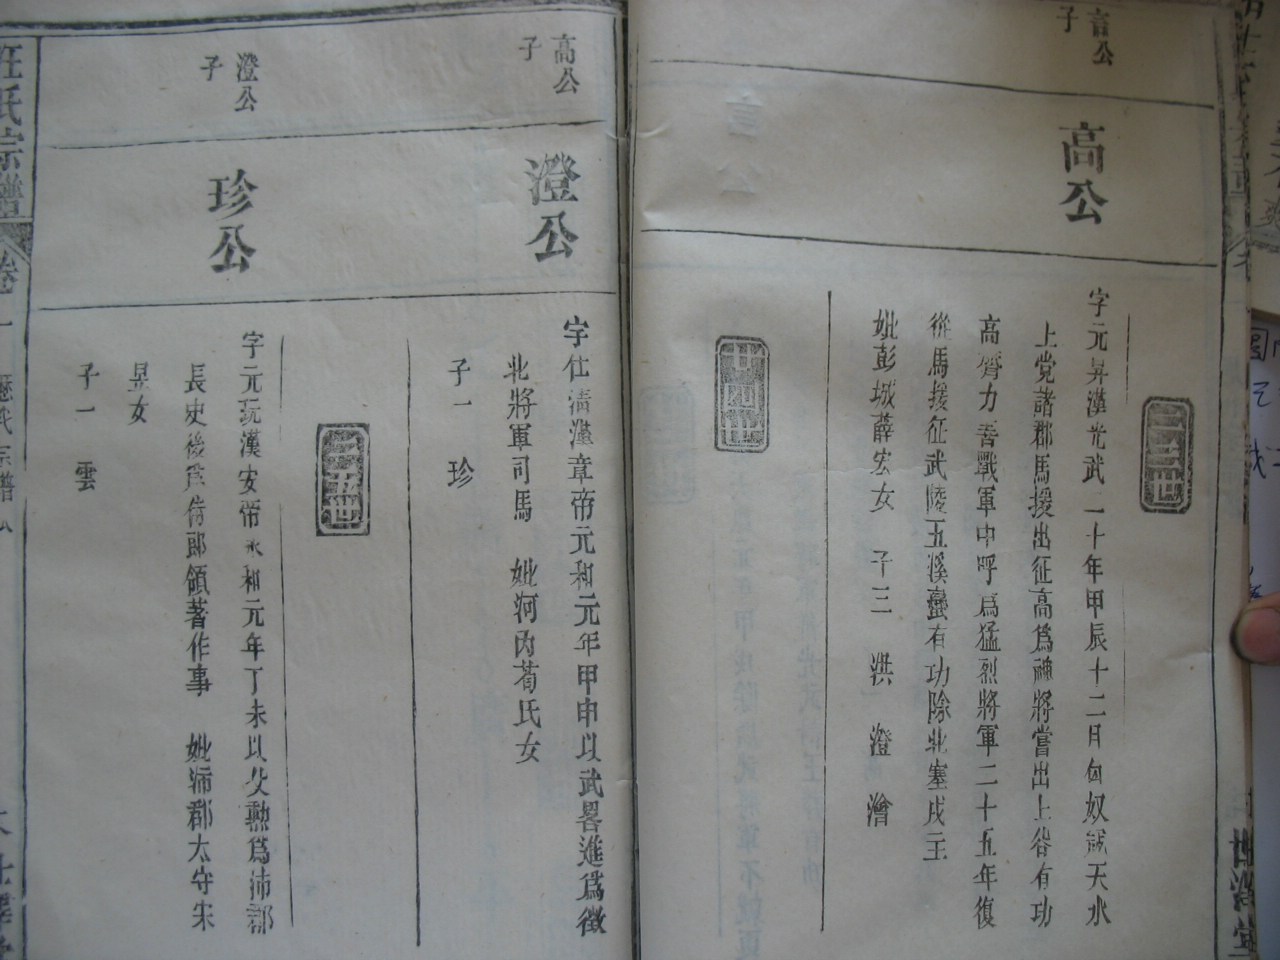 言公
子
高公
二三世
字元昇漢光武二十年甲辰十二月匈奴寇天水
上党諸郡馬援出征高爲裨將嘗出上谷有功
高膂力善戰軍中呼爲猛烈將軍二十五年復
從馬援征武陵五溪蠻有功除北塞戍主
妣彭城薛宏女 子三 洪 澄 澮
廿四世
高公
子
澄公
字仕清漢章帝元和元年甲申以武畧進爲徵
北將軍司馬 妣河內荀氏女
子一 珍
二五世
澄公
子
珍公
字元玩漢安帝永和元年丁未以父勲爲沛郡
長史後爲侍郎領著作事 妣沛郡太守朱
昱女
子一 雲
汪氏宗譜
卷一